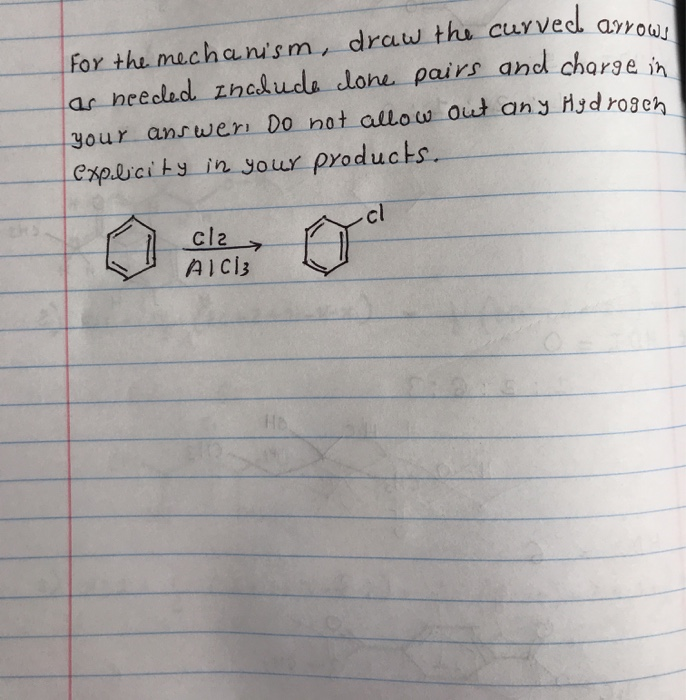 For the mechanism, draw the curved arrows
as needed Include lone pairs and charge in
your answer. Do not allow out any Hydrogen
explicity in your products.
Cl2
AlCl3
Cl